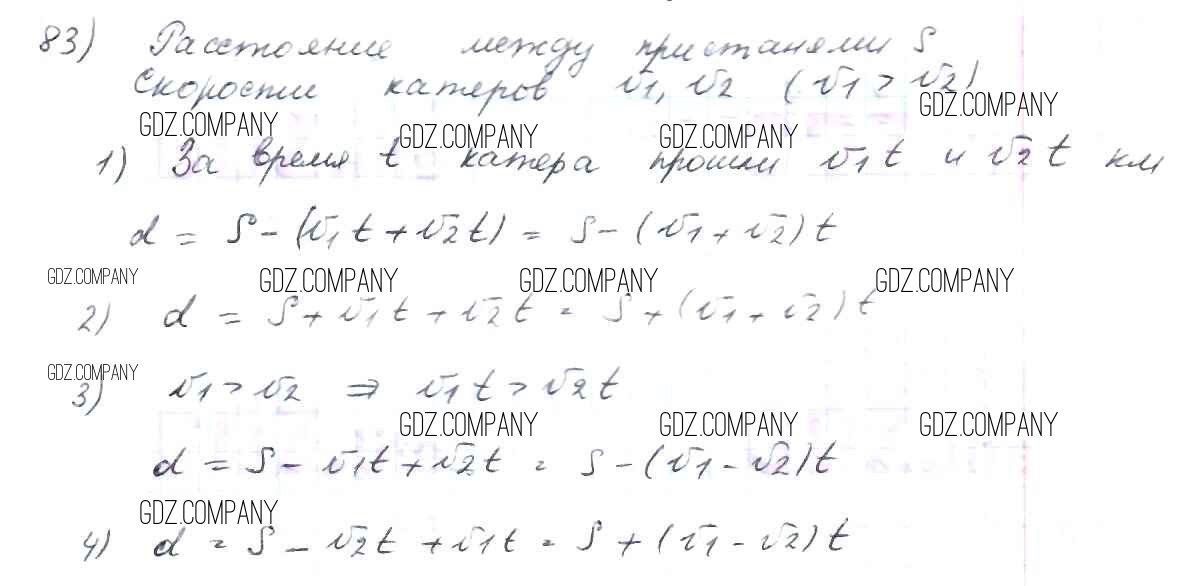 83) Расстояние между пристанями S
Скорости катеров v1, v2 (v1 > v2)
GDZ.COMPANY
GDZ.COMPANY GDZ.COMPANY GDZ.COMPANY
1) За время t катера прошли v1t и v2t км
d = S - (v1t + v2t) = S - (v1 + v2)t
GDZ.COMPANY GDZ.COMPANY GDZ.COMPANY GDZ.COMPANY
2) d = S + v1t + v2t = S + (v1 + v2)t
GDZ.COMPANY
3) v1 > v2 ⇒ v1t > v2t
GDZ.COMPANY GDZ.COMPANY GDZ.COMPANY
d = S - v1t + v2t = S - (v1 - v2)t
GDZ.COMPANY
4) d = S - v2t + v1t = S + (v1 - v2)t